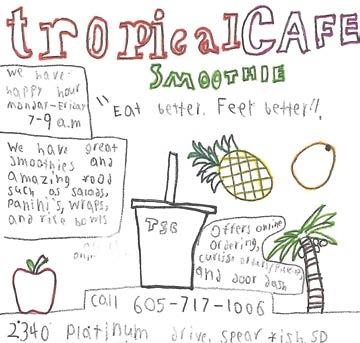 tropical CAFE
SMOOTHIE
we have:
happy hour
monday-Friday
7-9 a.m
"Eat better. Feel better!"
We have great
smoothies and
amazing food
such as salads,
panini's, wraps,
and rise bowls
TSC
Offers online
ordering,
and door dash
call 605-717-1006
2340 platinum drive, spearfish. SD